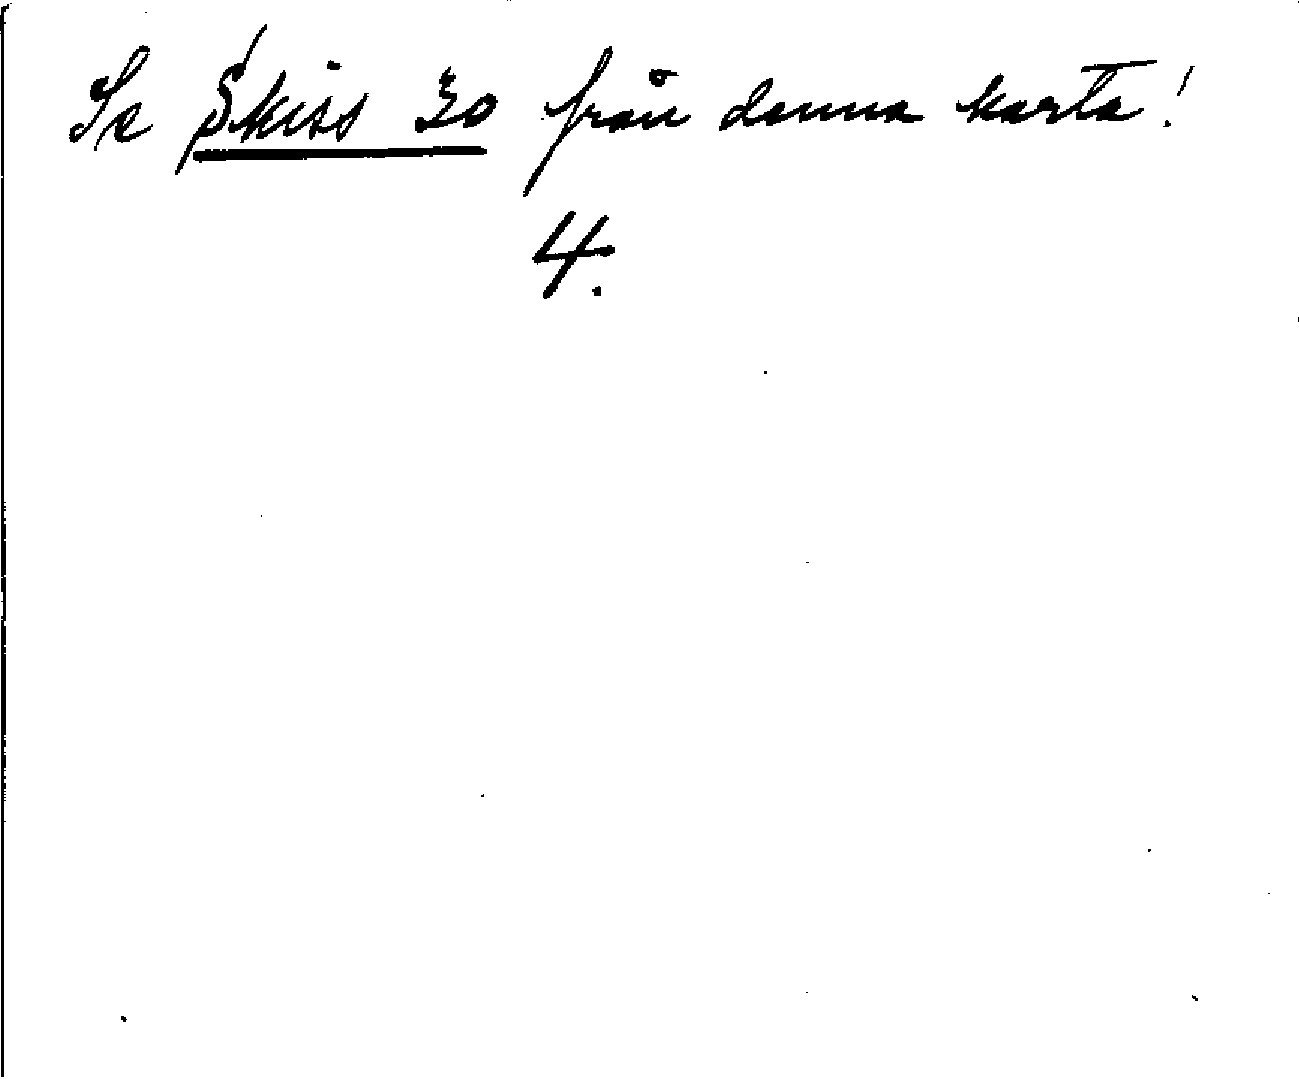 Se Skiss 30 från denna karta!
4.